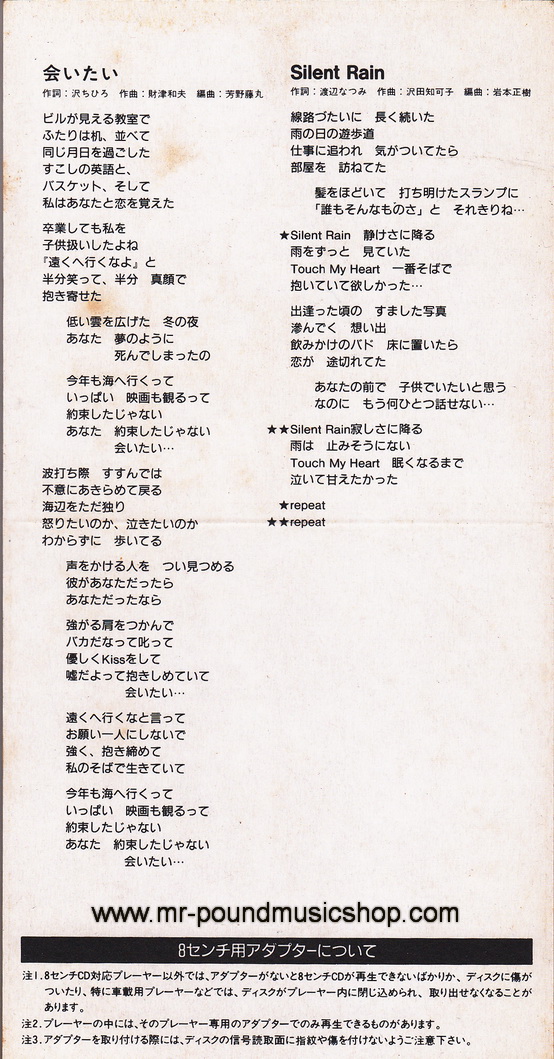 会いたい
作詞：沢ちひろ　作曲：財津和夫　編曲：芳野藤丸
ビルが見える教室で
ふたりは机、並べて
同じ月日を過ごした
すこしの英語と、
バスケット、そして
私はあなたと恋を覚えた
卒業しても私を
子供扱いしたよね
『遠くへ行くなよ』と
半分笑って、半分　真顔で
抱き寄せた
低い雲を広げた　冬の夜
あなた　夢のように
死んでしまったの
今年も海へ行くって
いっぱい　映画も観るって
約束したじゃない
あなた　約束したじゃない
会いたい…
波打ち際　すすんでは
不意にあきらめて戻る
海辺をただ独り
怒りたいのか、泣きたいのか
わからずに　歩いてる
声をかける人を　つい見つめる
彼があなただったら
あなただったなら
強がる肩をつかんで
バカだなって叱って
優しくKissをして
嘘だよって抱きしめていて
会いたい…
遠くへ行くなと言って
お願い一人にしないで
強く、抱き締めて
私のそばで生きていて
今年も海へ行くって
いっぱい　映画も観るって
約束したじゃない
あなた　約束したじゃない
会いたい…
Silent Rain
作詞：渡辺なつみ　作曲：沢田知可子　編曲：岩本正樹
線路づたいに　長く続いた
雨の日の遊歩道
仕事に追われ　気がついてたら
部屋を　訪ねてた
髪をほどいて　打ち明けたスランプに
「誰もそんなものさ」と　それきりね…
★Silent Rain　静けさに降る
雨をずっと　見ていた
Touch My Heart　一番そばで
抱いていて欲しかった…
出逢った頃の　すました写真
滲んでく　想い出
飲みかけのバド　床に置いたら
恋が　途切れてた
あなたの前で　子供でいたいと思う
なのに　もう何ひとつ話せない…
★★Silent Rain寂しさに降る
雨は　止みそうにない
Touch My Heart　眠くなるまで
泣いて甘えたかった
★repeat
★★repeat
www.mr-poundmusicshop.com
8センチ用アダプターについて
注1.8センチCD対応プレーヤー以外では、アダプターがないと8センチCDが再生できないばかりか、ディスクに傷が
ついたり、特に車載用プレーヤーなどでは、ディスクがプレーヤー内に閉じ込められ、取り出せなくなることが
あります。
注2.プレーヤーの中には、そのプレーヤー専用のアダプターでのみ再生できるものがあります。
注3.アダプターを取り付ける際には、ディスクの信号読取面に指紋や傷を付けないようご注意下さい。